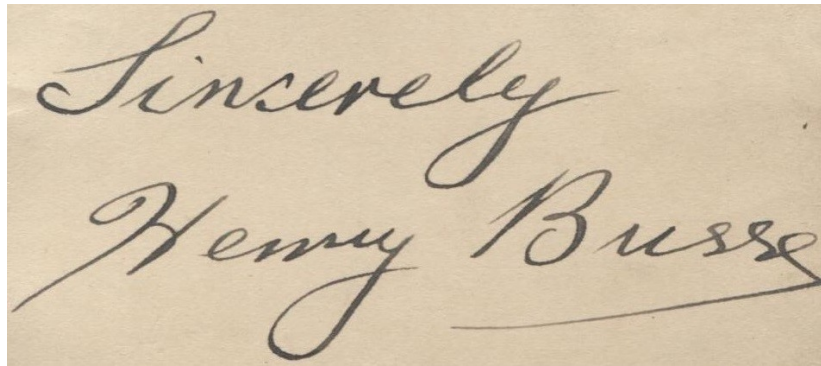 Sincerely
Henry Busse